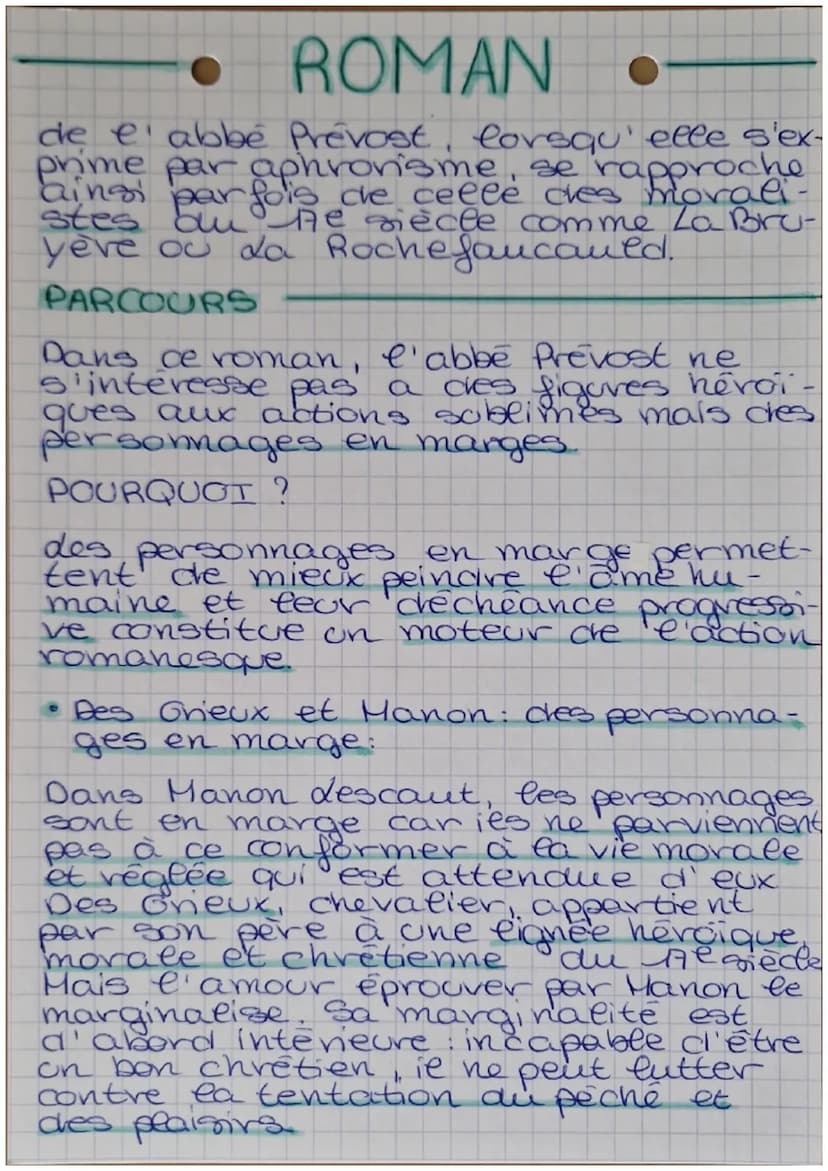 ROMAN
de l'abbé Prévost, lorsqu'elle s'ex-
prime par aphrorisme, se rapproche
ainsi parfois de celle des morali-
stes du 17e siècle comme La Bru-
yère ou La Rochefaucauld.
PARCOURS
Dans ce roman, l'abbé Prévost ne
s'intéresse pas a des figures héroï-
ques aux actions sublimes mais des
personnages en marges.
POURQUOI ?
des personnages en marge permet-
tent de mieux peindre l'âme hu-
maine et leur déchéance progressi-
ve constitue un moteur de l'action
romanesque.
• Des Grieux et Manon : des personna-
ges en marge :
Dans Manon Lescaut, les personnages
sont en marge car ils ne parviennent
pas à ce conformer à la vie morale
et réglée qui est attendue d'eux
Des Grieux, chevalier, appartient
par son père à une lignée héroïque,
morale et chrétienne du 17e siècle
Mais l'amour éprouver par Manon le
marginalise. Sa marginalité est
d'abord intérieure : incapable d'être
un bon chrétien, il ne peut lutter
contre la tentation du péché et
des plaisirs.